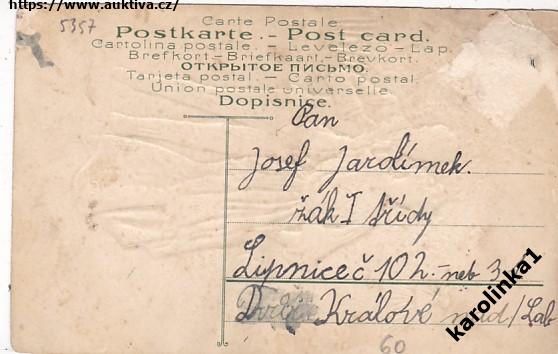 https://www.auktiva.cz/
5357
Carte Postale.
Postkarte. - Post card.
Cartolina postale. - Levelező - Lap.
Brefkort - Briefkaart - Brevkort.
ОТКРЫТОЕ ПИСЬМО.
Tarjeta postal. - Carto postal.
Union postale universelle.
Dopisnice.
Pan
Josef Jarolímek.
žák I třídy
Lipnice č 102 - neb 3
Králové nad/Lab
60
karolinka1